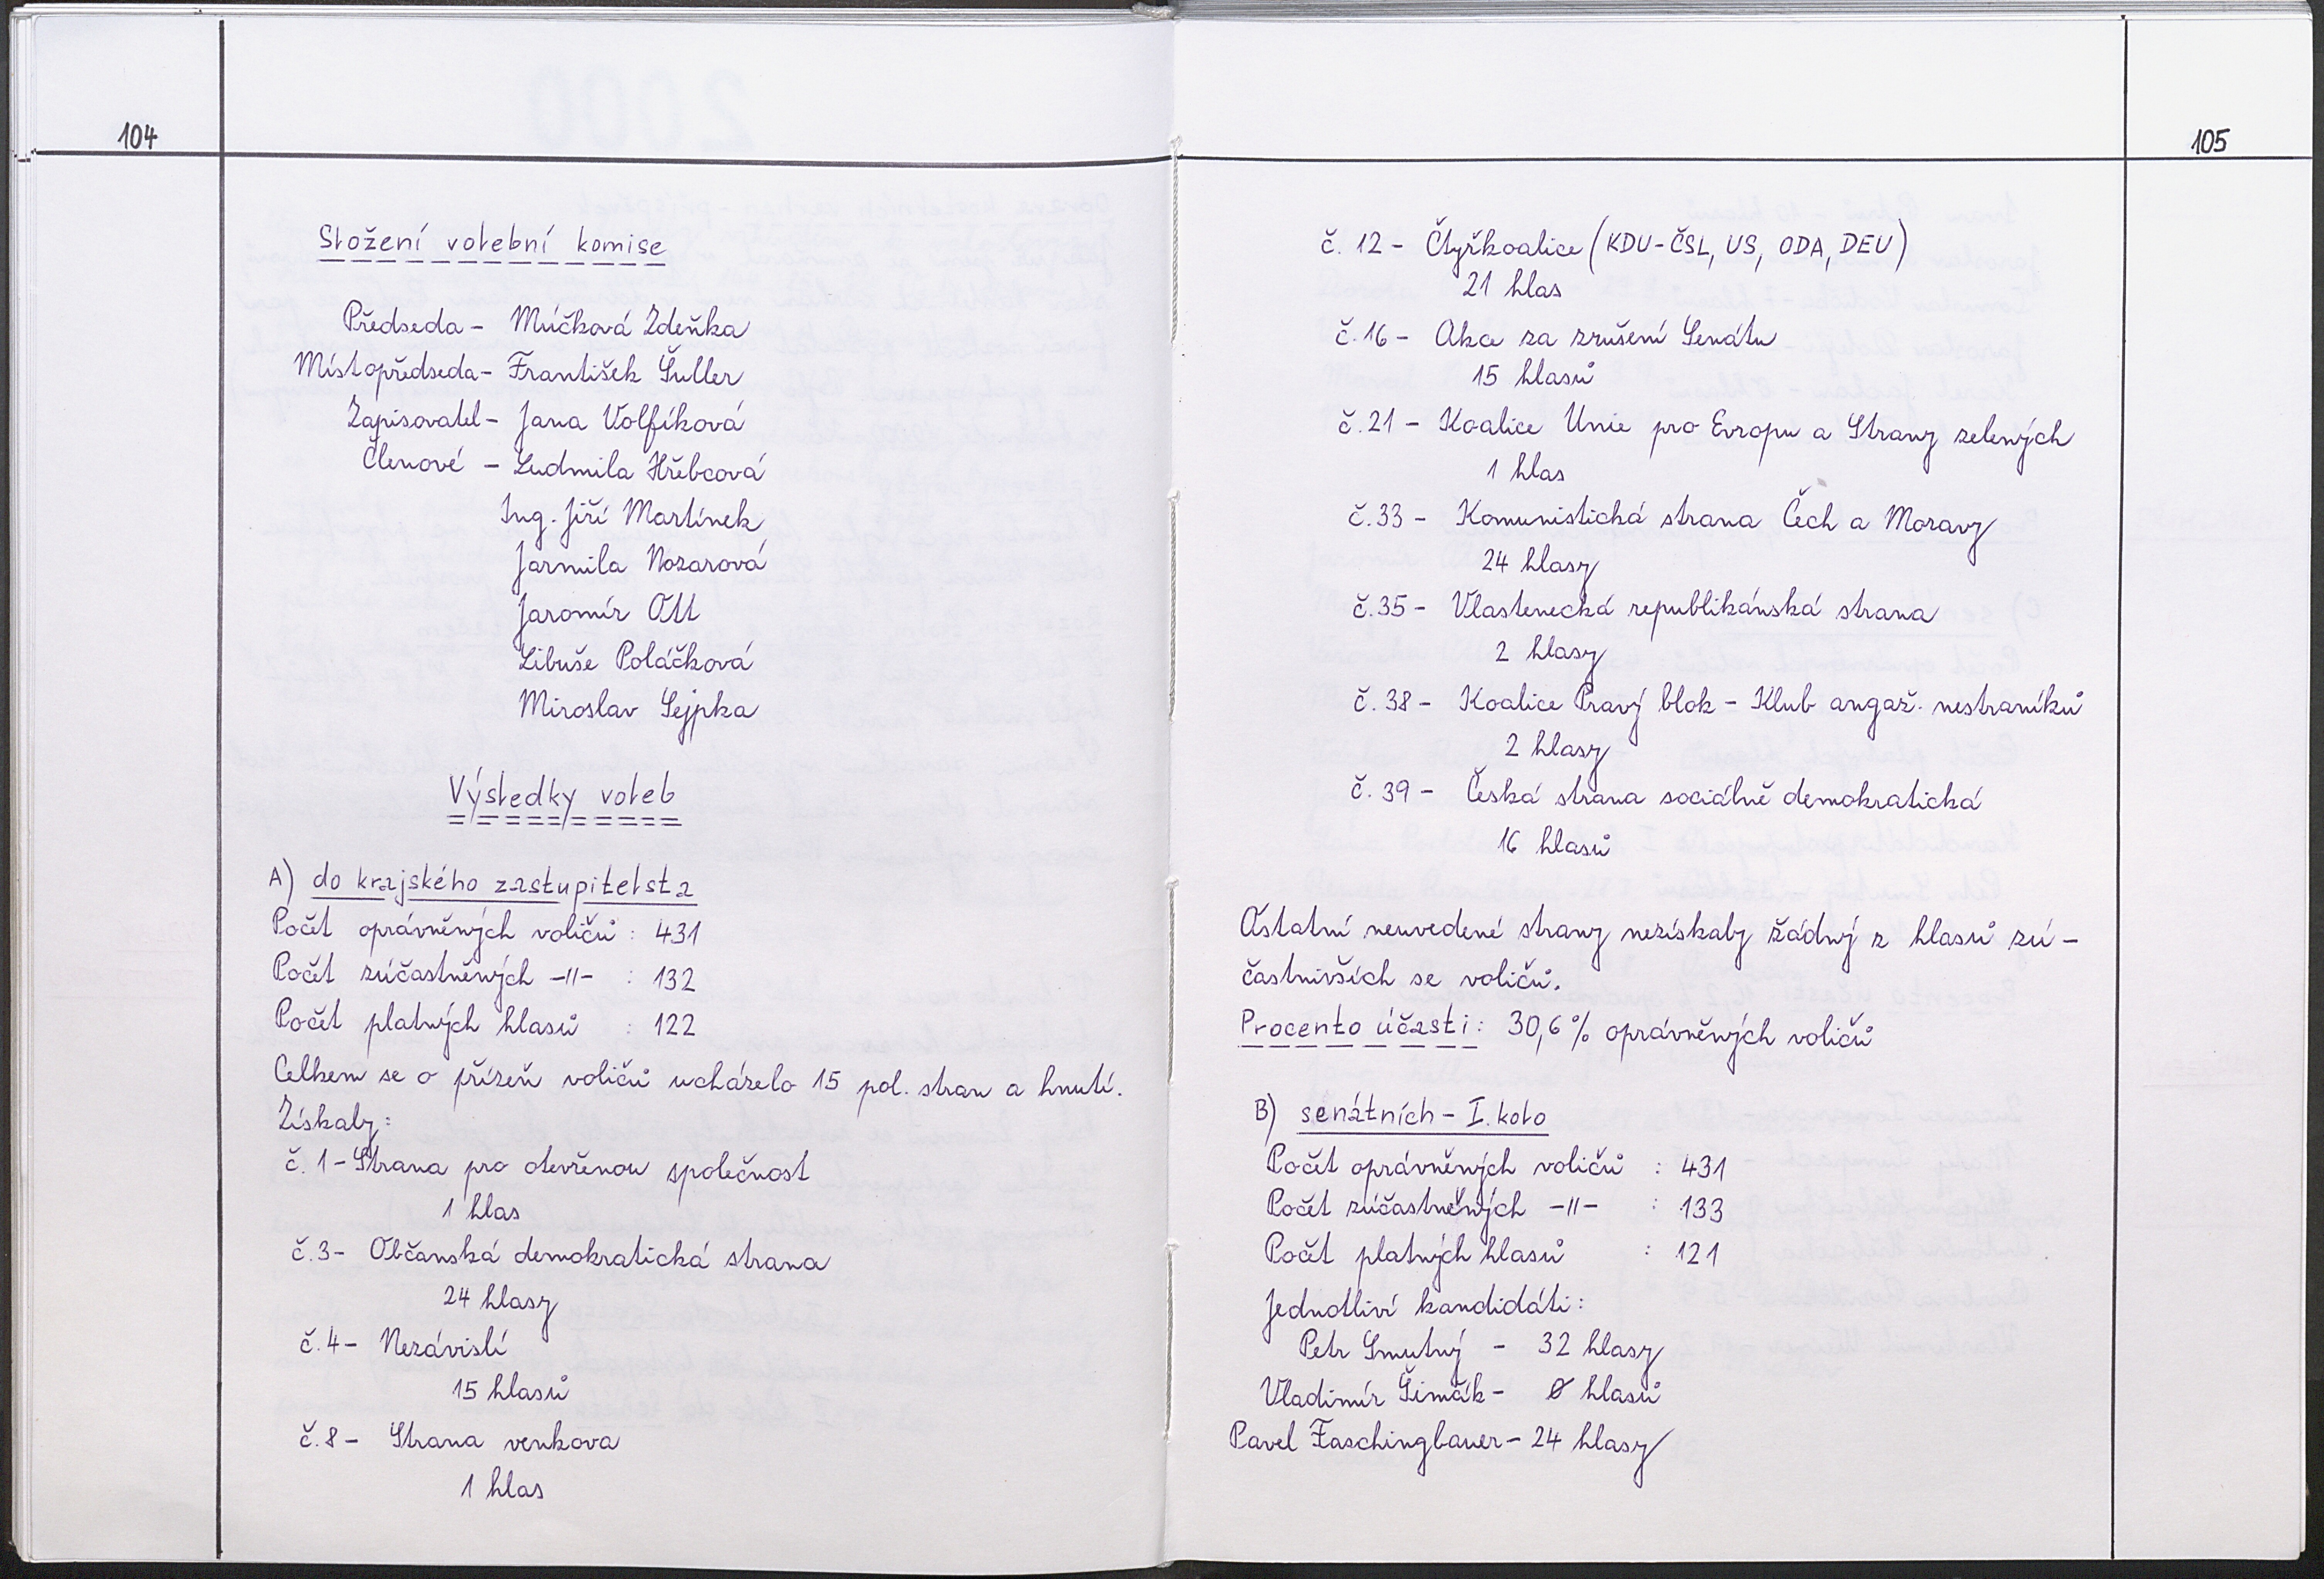 104
Složení volební komise
Předseda - Múčková Zdeňka
Místopředseda - František Šuller
Zapisovatel - Jana Volfíková
Členové - Ludmila Hřebcová
Ing. Jiří Martínek
Jarmila Nozarová
Jaromír Ott
Libuše Poláčková
Miroslav Sejpka
Výsledky voleb
A) do krajského zastupitelsta
Počet oprávněných voličů : 431
Počet zúčastněných -II- : 132
Počet platných hlasů : 122
Celkem se o přízeň voličů ucházelo 15 pol. stran a hnutí.
Získaly:
č. 1 - Strana pro otevřenou společnost
1 hlas
č. 3 - Občanská demokratická strana
24 hlasy
č. 4 - Nezávislí
15 hlasů
č. 8 - Strana venkova
1 hlas
105
č. 12 - Čtyřkoalice (KDU-ČSL, US, ODA, DEU)
21 hlas
č. 16 - Akce za zrušení Senátu
15 hlasů
č. 21 - Koalice Unie pro Evropu a Strany zelených
1 hlas
č. 33 - Komunistická strana Čech a Moravy
24 hlasy
č. 35 - Vlastenecká republikánská strana
2 hlasy
č. 38 - Koalice Pravý blok - Klub angaž. nestraníků
2 hlasy
č. 39 - Česká strana sociálně demokratická
16 hlasů
Ostatní neuvedené strany nezískaly žádný z hlasů zú-
častnivších se voličů.
Procento účasti: 30,6% oprávněných voličů
B) senátních - I. kolo
Počet oprávněných voličů : 431
Počet zúčastněných -II- : 133
Počet platných hlasů : 121
Jednotliví kandidáti:
Petr Smutný - 32 hlasy
Vladimír Šimčík - 0 hlasů
Pavel Faschingbauer - 24 hlasy